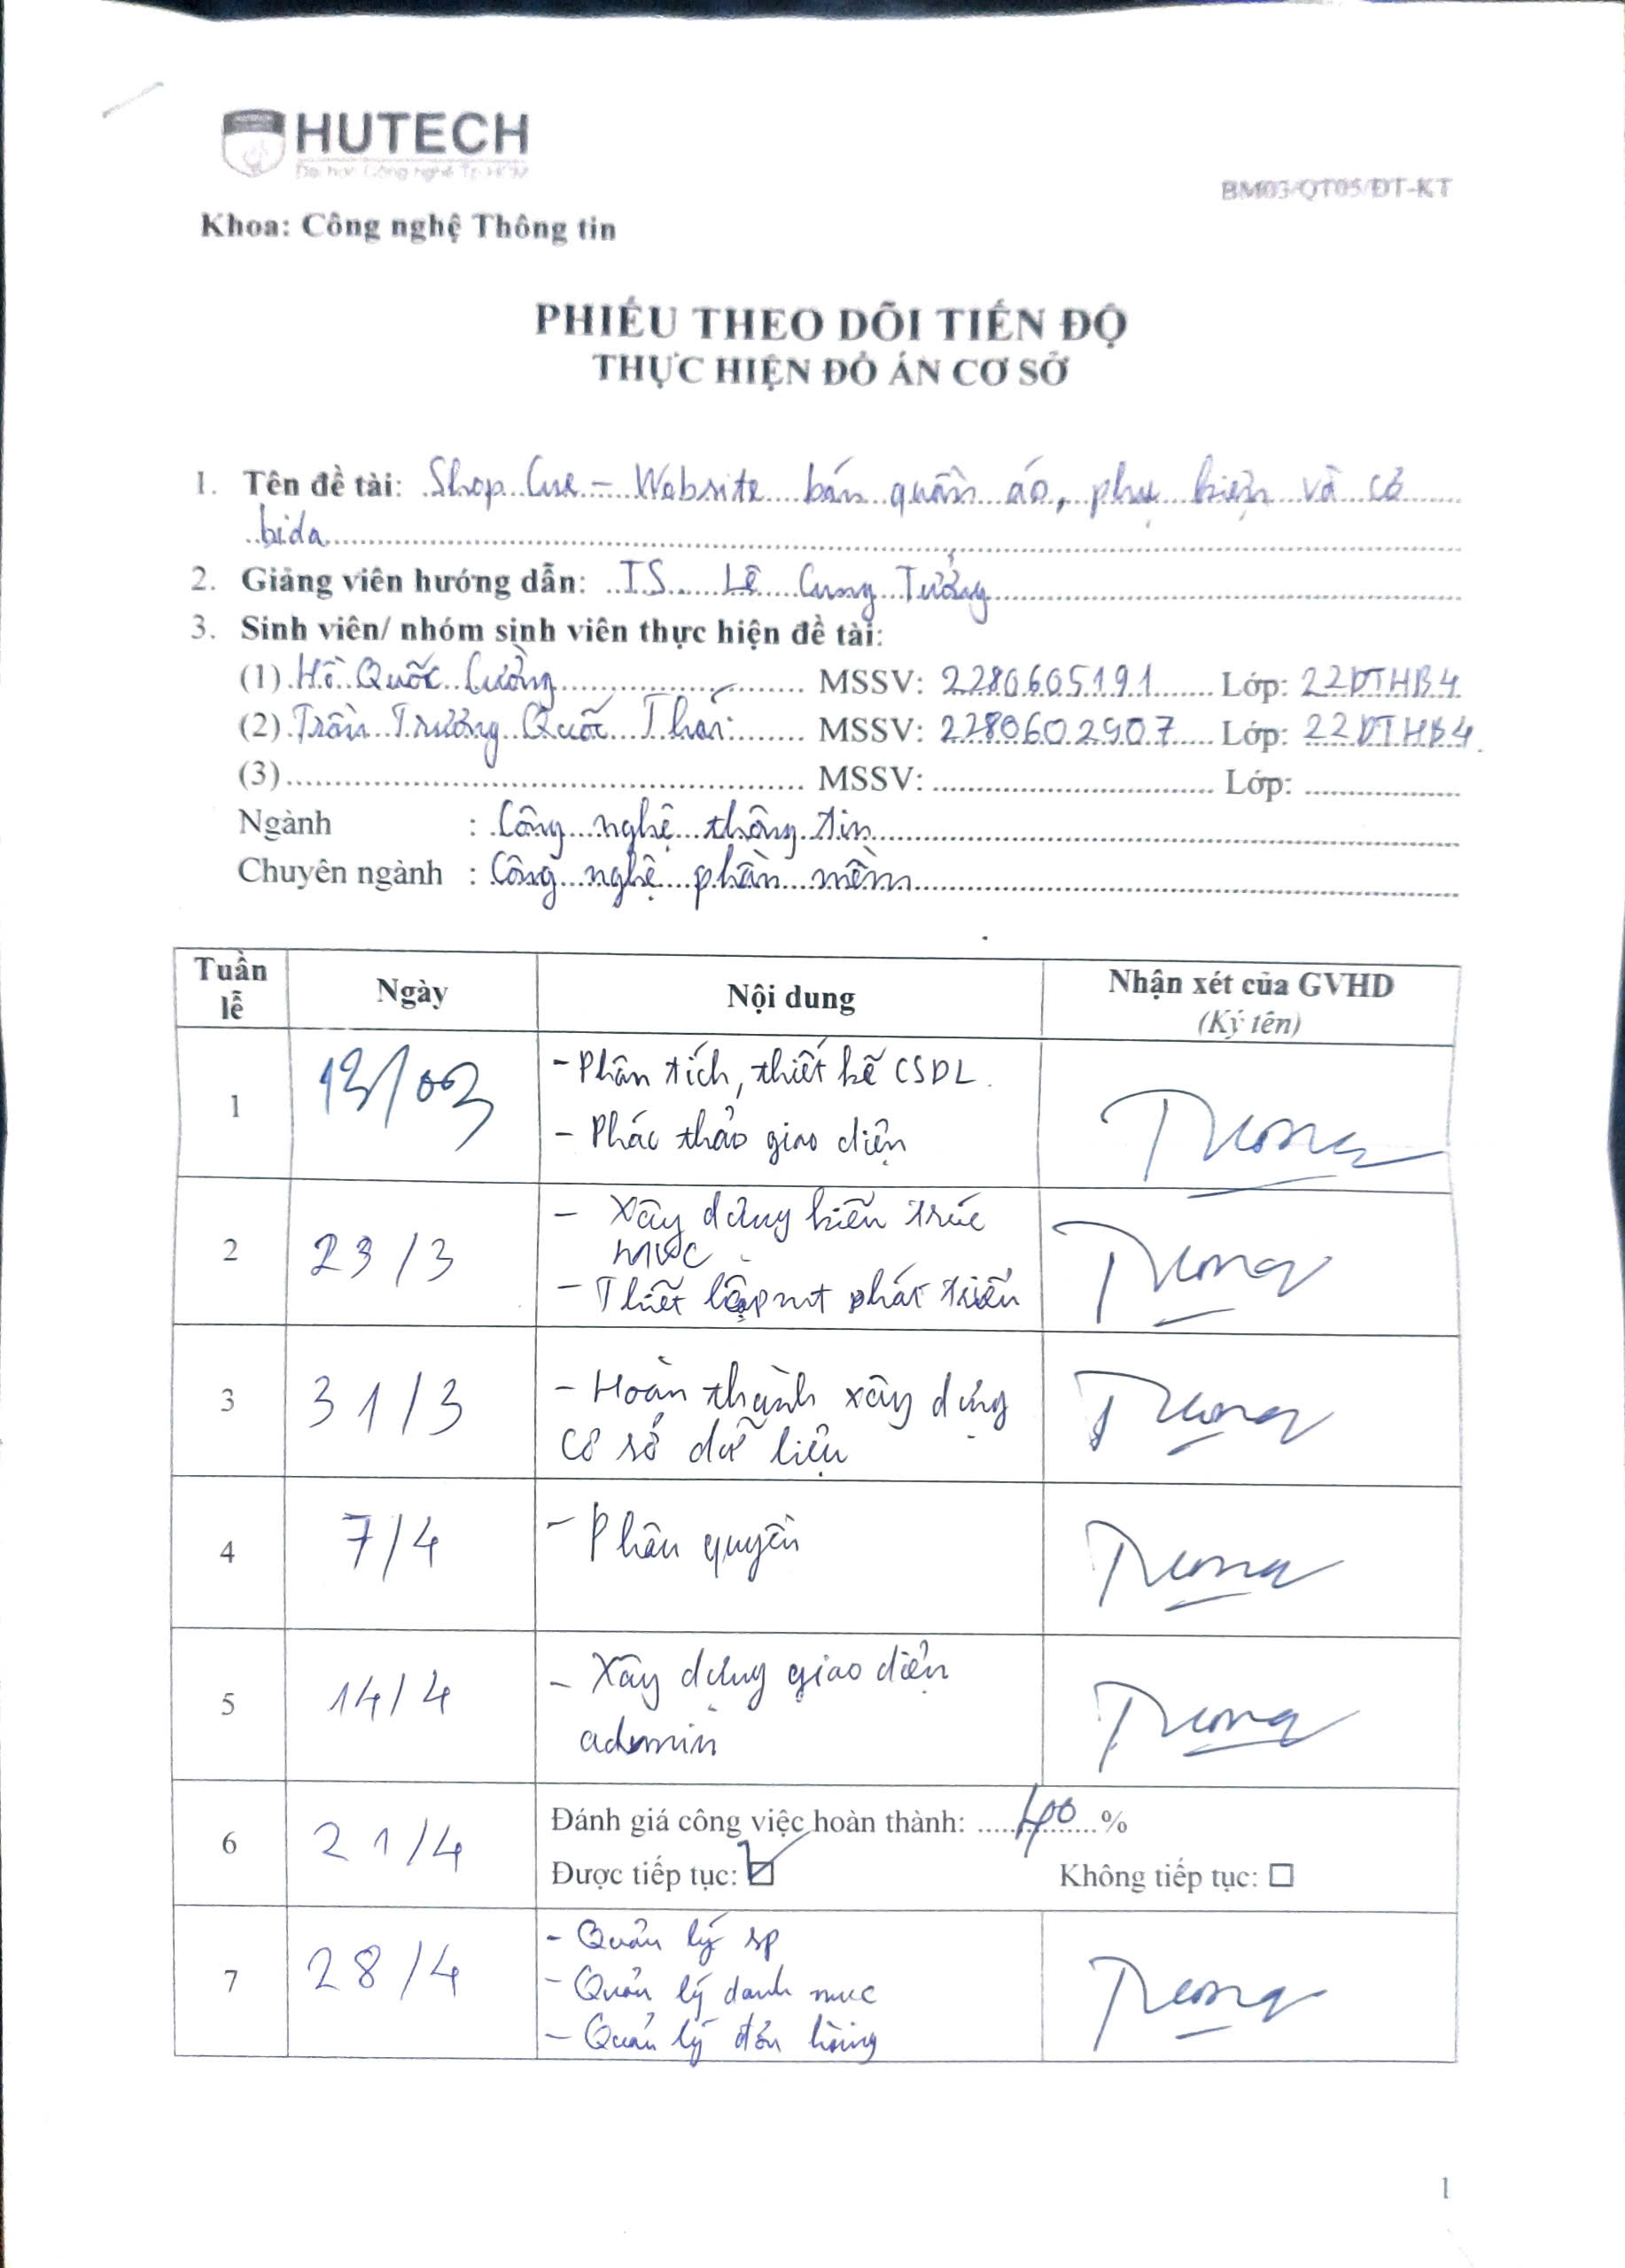 HUTECH
Đại học Công nghệ Tp.HCM
BM03/QT05/ĐT-KT
Khoa: Công nghệ Thông tin
PHIẾU THEO DÕI TIẾN ĐỘ
THỰC HIỆN ĐỒ ÁN CƠ SỞ
1. Tên đề tài: Shop Cue – Website bán quần áo, phụ kiện và cơ
bida
2. Giảng viên hướng dẫn: TS. Lê Cung Tưởng
3. Sinh viên/ nhóm sinh viên thực hiện đề tài:
(1) Hồ Quốc Cường MSSV: 2280605191 Lớp: 22DTHB4
(2) Trần Trương Quốc Thái MSSV: 2280602907 Lớp: 22DTHB4
(3) MSSV: Lớp:
Ngành : Công nghệ thông tin
Chuyên ngành : Công nghệ phần mềm
Tuần lễ Ngày Nội dung Nhận xét của GVHD
(Ký tên)
1 13/03 - Phân tích, thiết kế CSDL.
- Phác thảo giao diện
2 23/3 - Xây dựng kiến trúc
MVC
- Thiết lập mt phát triển
3 31/3 - Hoàn thành xây dựng
cơ sở dữ liệu
4 7/4 - Phân quyền
5 14/4 - Xây dựng giao diện
admin
6 21/4 Đánh giá công việc hoàn thành: %
Được tiếp tục: ☑ Không tiếp tục: ☐
7 28/4 - Quản lý sp
- Quản lý danh mục
- Quản lý đơn hàng
1